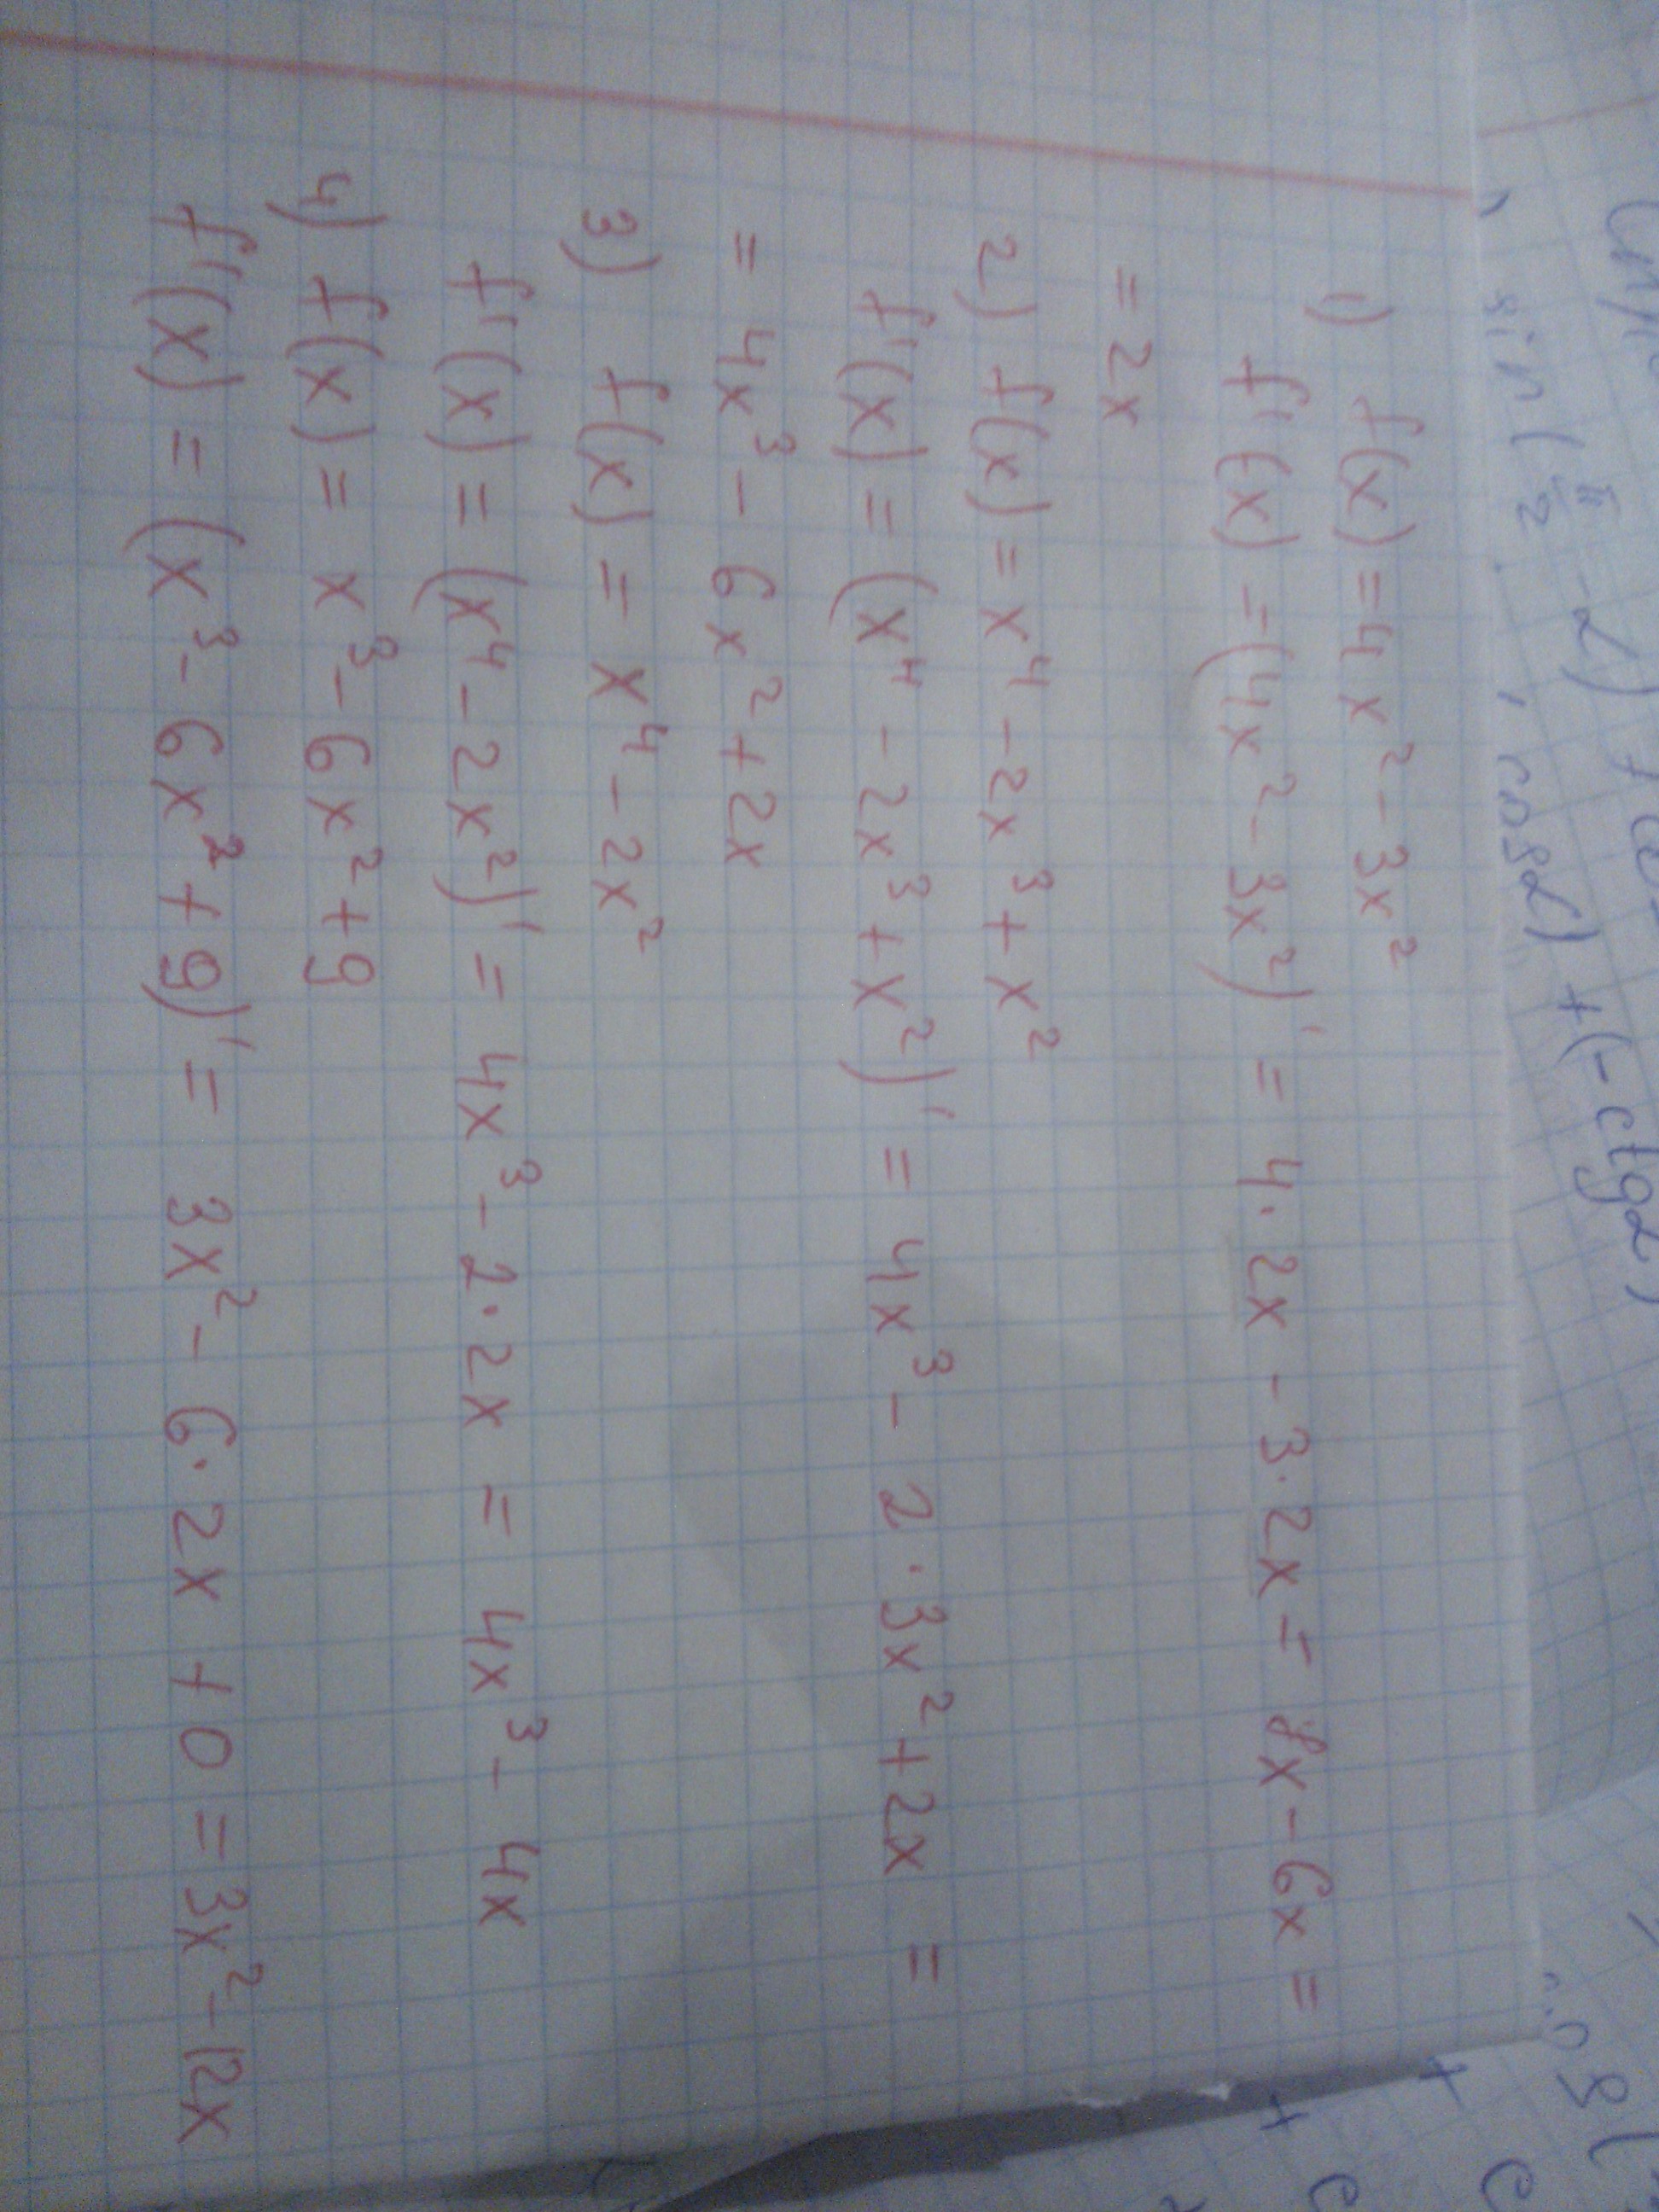 sin(π/2
, cosα) + (-ctgα)
1) f(x) = 4x² - 3x²
f'(x) = (4x² - 3x²)' = 4·2x - 3·2x = 8x - 6x =
= 2x
2) f(x) = x⁴ - 2x³ + x²
f'(x) = (x⁴ - 2x³ + x²)' = 4x³ - 2·3x² + 2x =
= 4x³ - 6x² + 2x
3) f(x) = x⁴ - 2x²
f'(x) = (x⁴ - 2x²)' = 4x³ - 2·2x = 4x³ - 4x
4) f(x) = x³ - 6x² + 9
f'(x) = (x³ - 6x² + 9)' = 3x² - 6·2x + 0 = 3x² - 12x